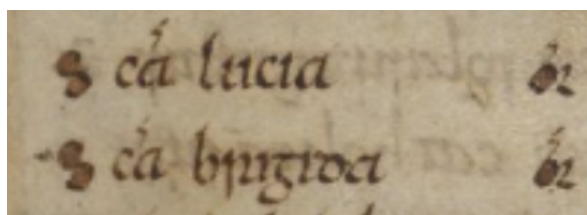 Scá lucia ór
Scá brigida ór